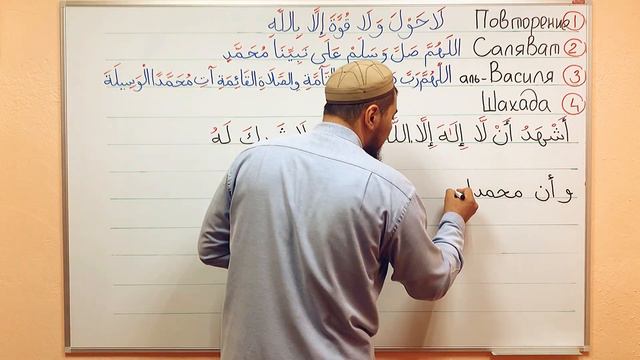 لَا حَوْلَ وَلَا قُوَّةَ إِلَّا بِاللَّهِ Повторение 1
اللَّهُمَّ صَلِّ وَسَلِّمْ عَلَى نَبِيِّنَا مُحَمَّدٍ Саляват 2
اللَّهُمَّ رَبَّ التَّآمَّةِ وَالصَّلَاةِ الْقَائِمَةِ آتِ مُحَمَّدًا الْوَسِيلَةَ аль-Василя 3
Шахада 4
أَشْهَدُ أَنْ لَّا إِلَهَ إِلَّا اللَّهُ لَا شَرِيكَ لَهُ
و أن محمدا